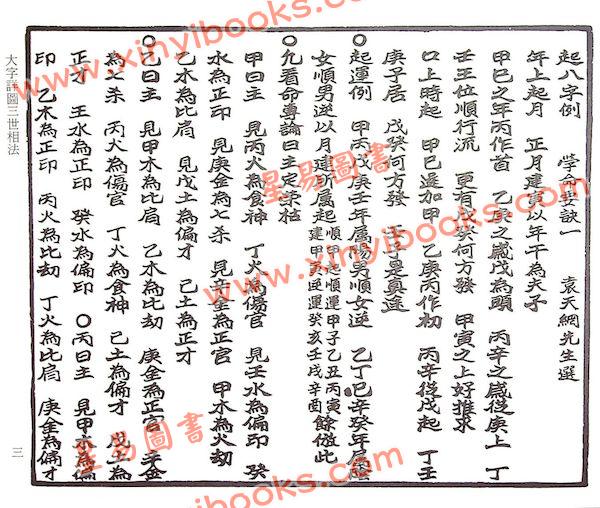 起八字例　學命要訣一　袁天綱先生選
年上起月　正月建寅以年干為夫子
甲巳之年丙作首　乙庚之歲戊為頭　丙辛之歲從庚上　丁
壬壬位順行流　更有戊癸何方發　甲寅之上好推求
日上時起　甲巳還加甲　乙庚丙作初　丙辛從戊起　丁壬
庚子居　戊癸何方發　壬子是真途
〇起運例　甲丙戊庚壬年屬陽男順女逆　乙丁巳辛癸年屬陰
女順男逆以月建所屬起　順運甲子乙丑丙寅　建甲寅逆運癸亥壬戌辛酉　餘倣此
〇凡看命專論日主定榮枯
甲日主　見丙火為食神　丁火為傷官　見壬水為偏印　癸
水為正印　見庚金為七杀　見辛金為正官　甲木為火劫
乙木為比肩　見戊土為偏才　己土為正才
〇己日主　見甲木為比肩　乙木為比劫　庚金為正官　辛金
為七杀　丙火為傷官　丁火為食神　己土為偏才　戊土為
正才　壬水為正印　癸水為偏印　〇丙日主　見甲木為偏
印　乙木為正印　丙火為比劫　丁火為比肩　庚金為偏才
大字詳圖三世相法
三
www.xinyibooks.com
星易圖書
www.xinyibooks.com
星易圖書
www.xinyibooks.com